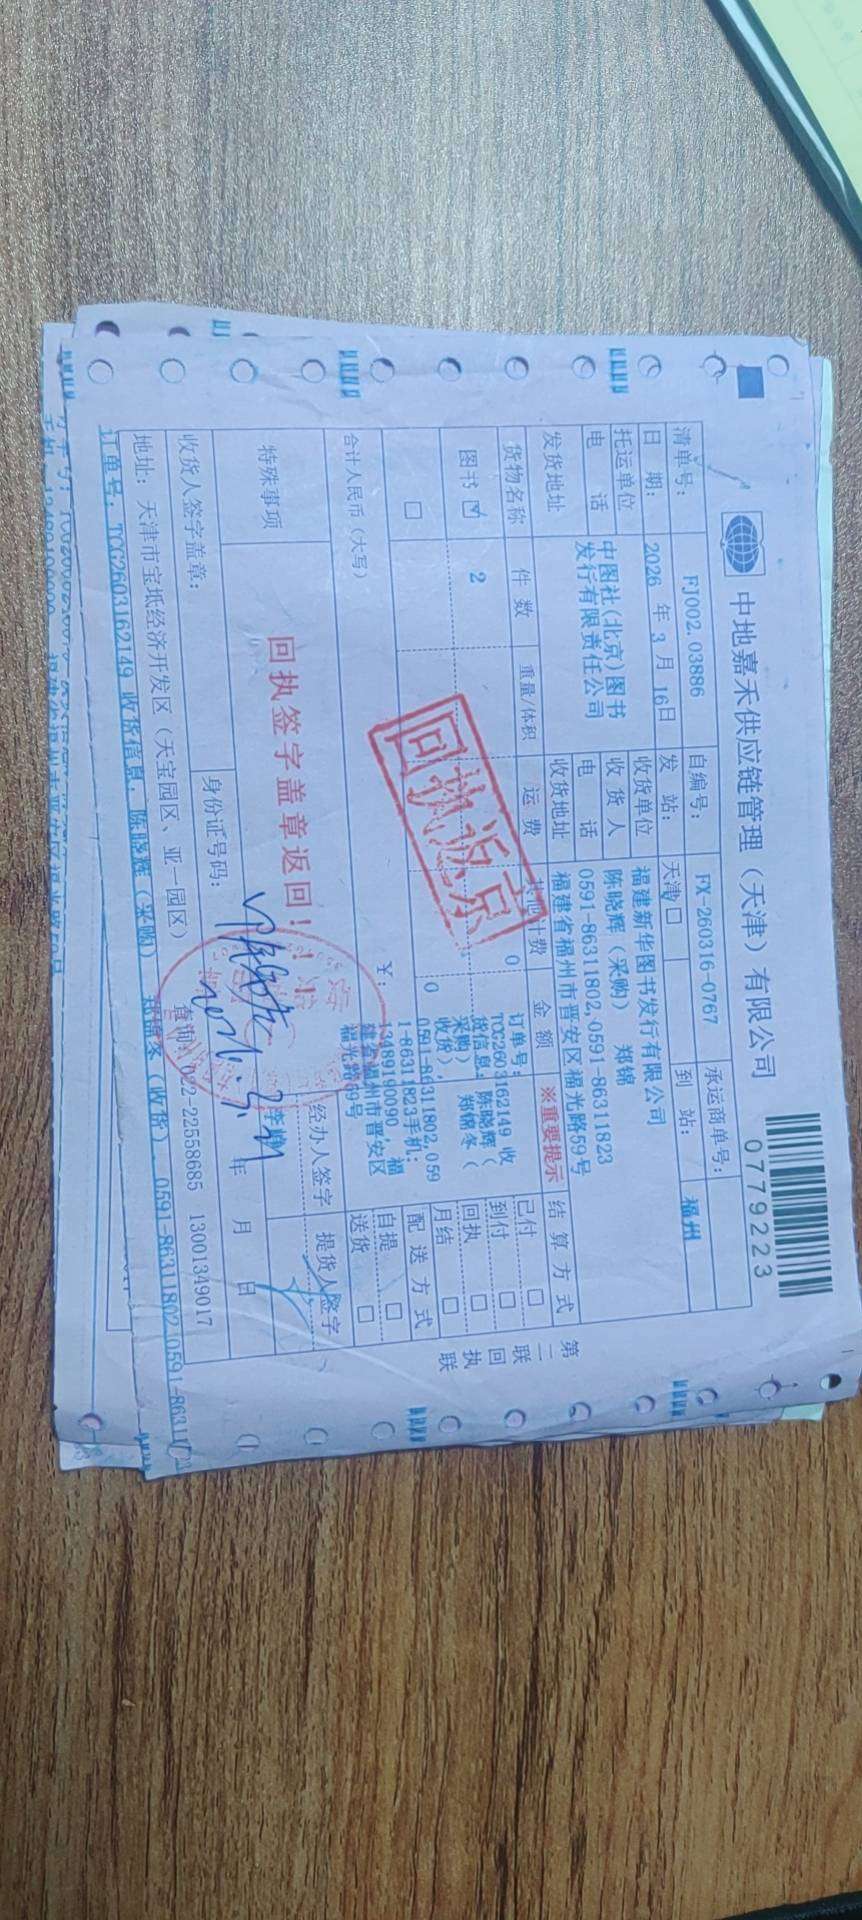 中地嘉禾供应链管理（天津）有限公司
0779223
清单号： FJ002.03886 自编号： FX-260316-0767 承运商单号：
日 期： 2026 年 3 月 16日 发 站： 天津□ 到 站： 福州
托运单位 中图社(北京)图书发行有限责任公司 收货单位 福建新华图书发行有限公司
收 货 人 陈晓辉（采购） 郑锦
电 话 电 话 0591-86311802,0591-86311823
发货地址 收货地址 福建省福州市晋安区福光路59号
货物名称 件 数 重量/体积 运 费 其他计费 金 额 ※重要提示 结 算 方 式
图书 ☑ 2 0
□ 0
订单号：
TCG2603162149 收
货信息：陈晓辉（
采购） 郑锦冬（
收货），
0591-86311802,059
1-86311823手机：
13489190090，福
建省福州市晋安区
福光路59号
已付 □
到付 □
回执 □
月结 □
配 送 方 式
自提 □
送货 □
合计人民币（大写） ￥：
经办人签字 提货人签字
特殊事项 回执签字盖章返回！
回执返京
收货人签字盖章： 身份证号码： 年 月 日
地址：天津市宝坻经济开发区（天宝园区、亚一园区） 查询：022-22558685 13001349017
订单号：TCG2603162149 收货信息：陈晓辉（采购） 郑锦冬（收货），0591-86311802,0591-863118
第二联 回执联